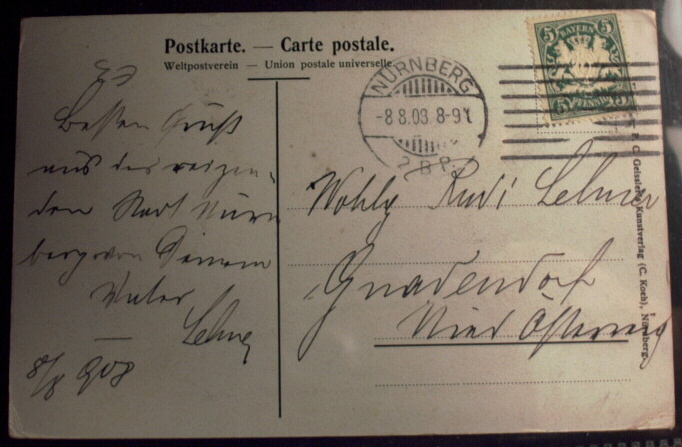 Postkarte. — Carte postale.
Weltpostverein — Union postale universelle
NÜRNBERG
-8 8.08. 8-9V.
2 B.P.
5 BAYERN 5
5 PFENNIG 5
Besten Gruß
aus der reizen-
den Stadt Nürn
berg von Deinem
Vater
8/8 908
Wohlg Rudi
Gnadendorf
Nied Österreich
P. C. Geissler, Kunstverlag (C. Koch), Nürnberg.